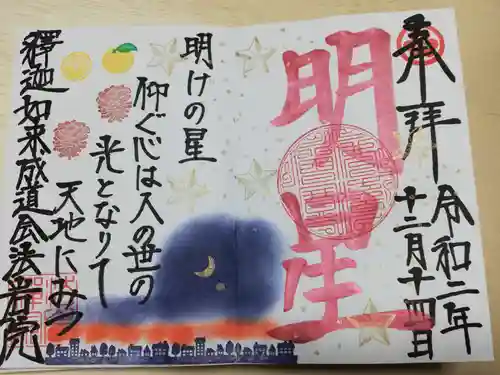 奉拝
令和二年
十二月十四日
明星
明けの星
仰ぐ心は人の世の
光となりて
天地にみつ
釋迦如来成道会法岩苑